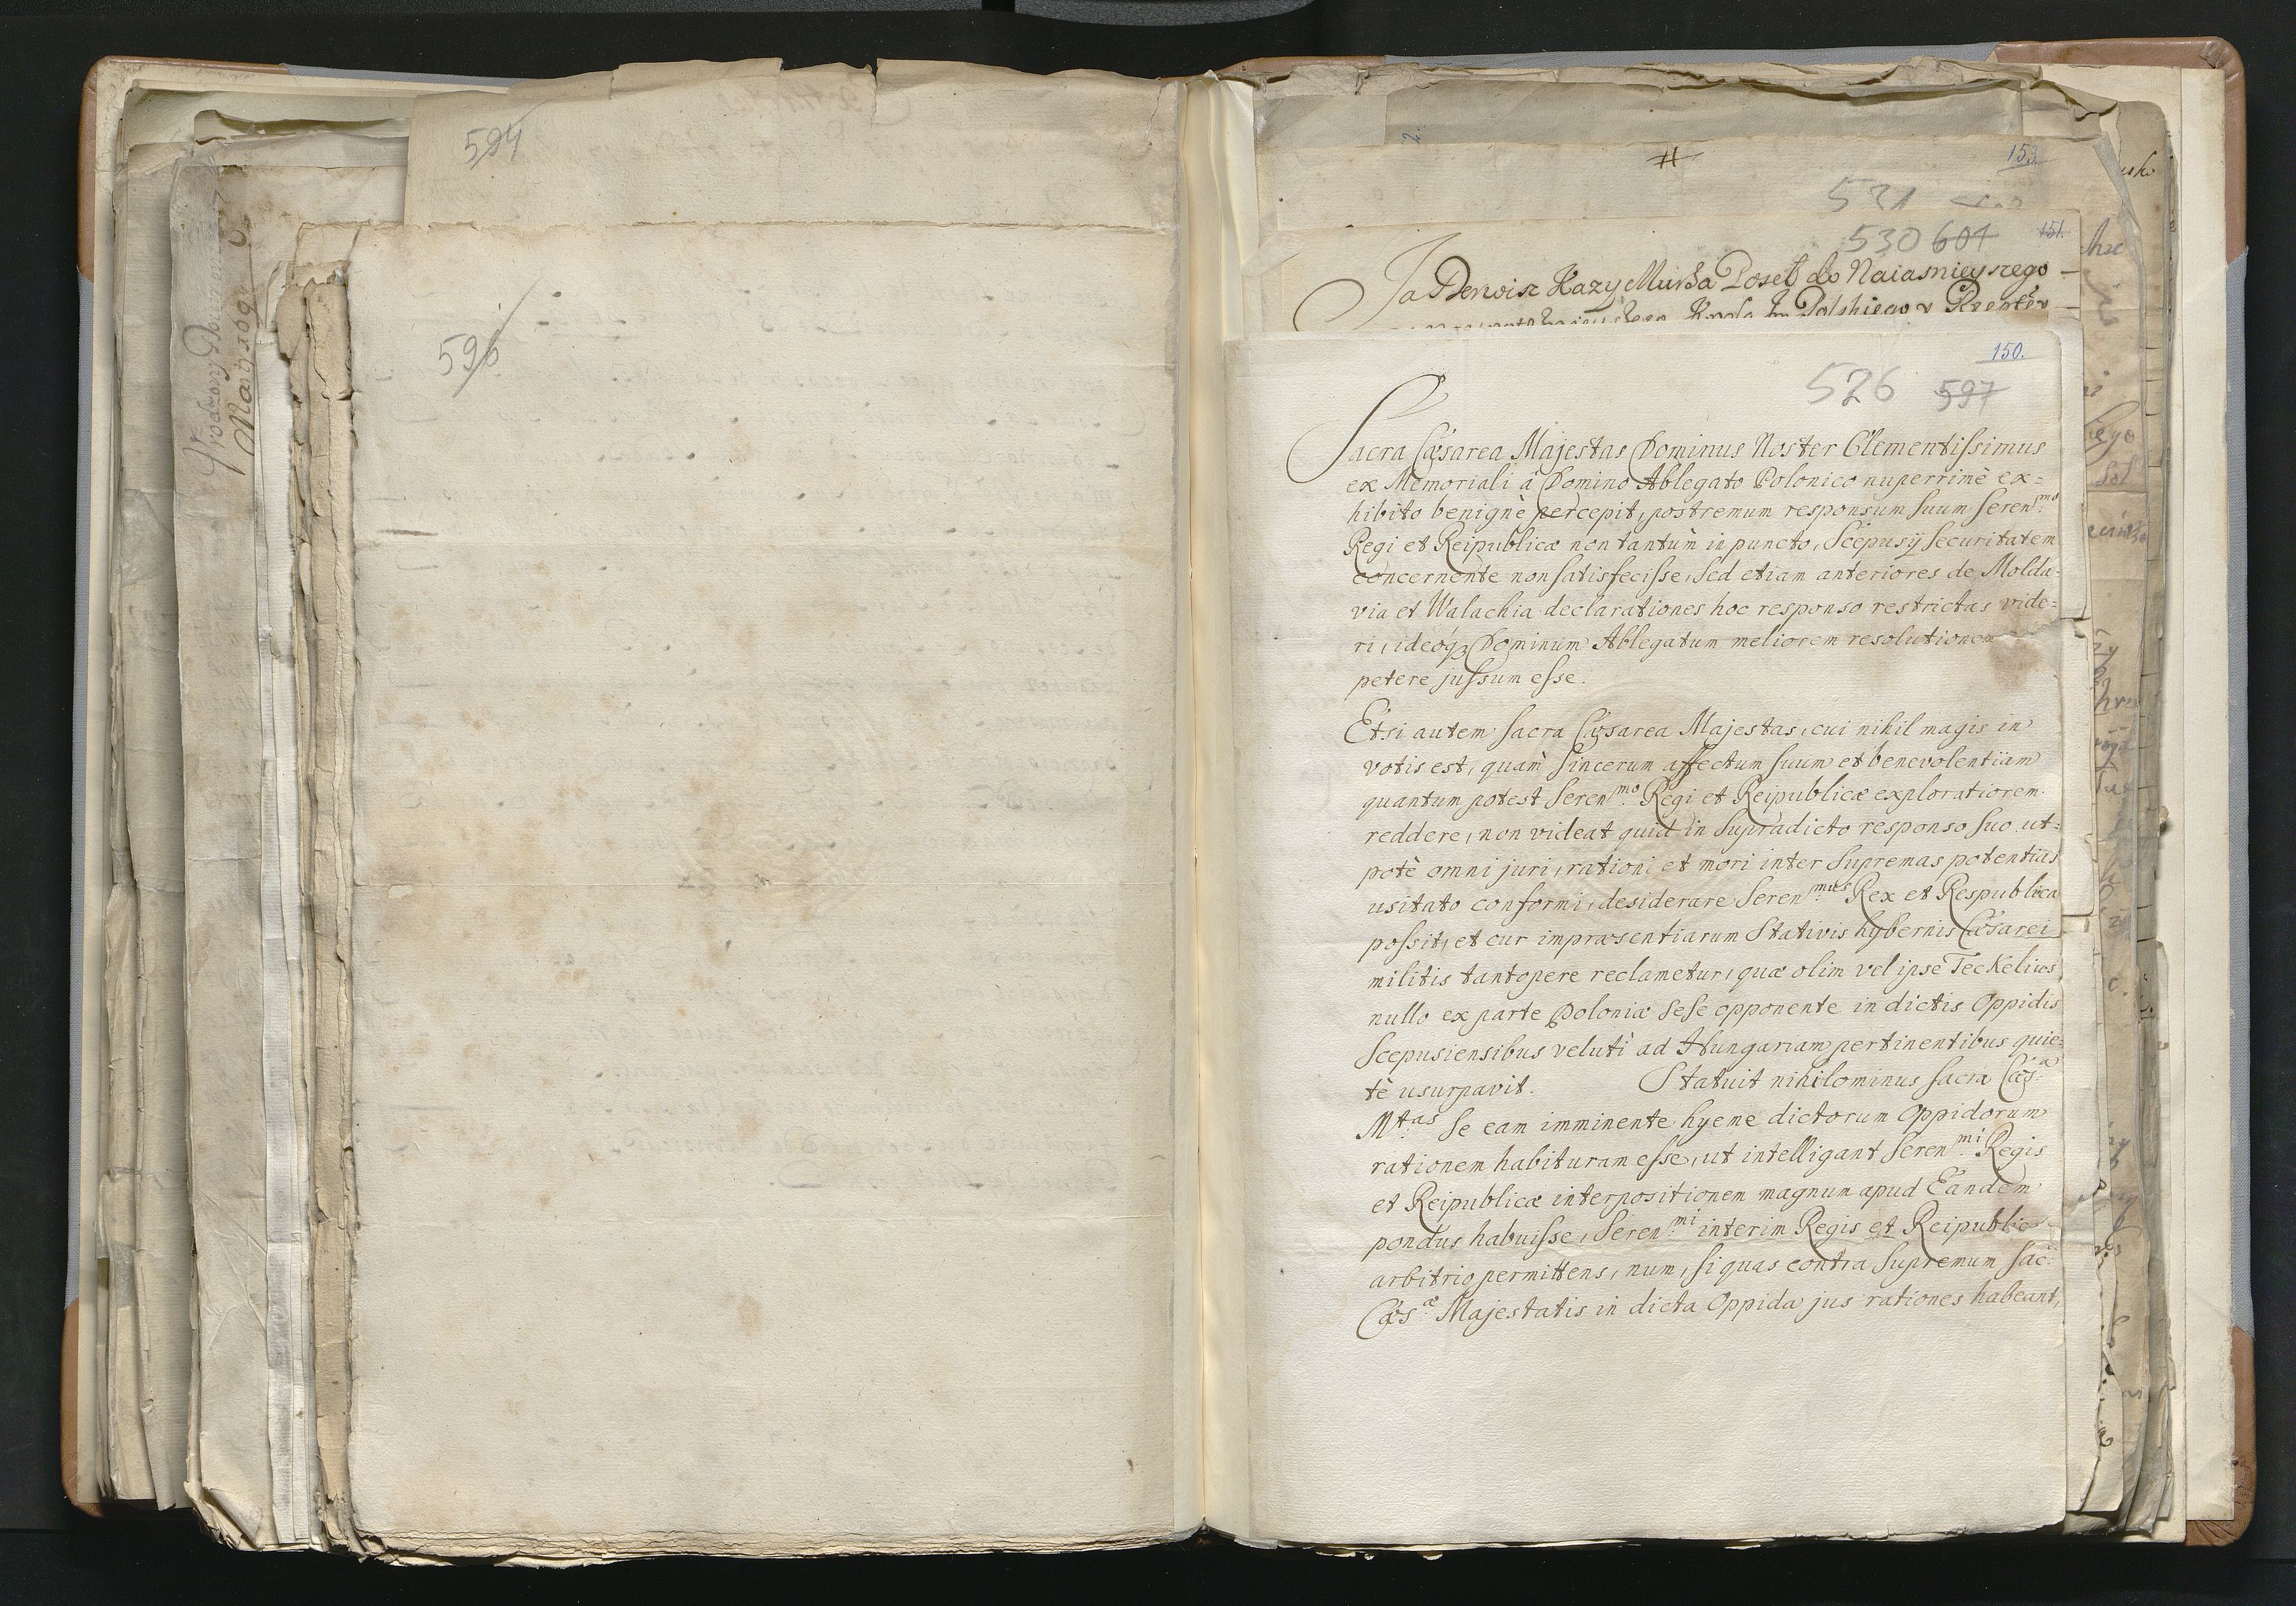 594
596
153.
531
530 601 151.
Ja Derwisz Kazy Murża Poseł do Naiasnieyszego
150.
526 597
Sacra Cæsarea Majestas Dominus Noster Clementissimus
ex Memoriali à Domino Ablegato Polonico nuperrimè ex=
hibito benignè percepit, postremum responsum suum Seren.mo
Regi et Reipublicæ non tantùm in puncto, Scepusij securitatem
concernente non satisfecisse, sed etiam anteriores de Molda=
via et Walachia declarationes hoc responso restrictas vide=
ri, ideóq3 Dominum Ablegatum meliorem resolutionem
petere jussum esse.
Etsi autem Sacra Cæsarea Majestas, cui nihil magis in
votis est, quàm sincerum affectum suum et benevolentiam
quantum potest Seren.mo Regi et Reipublicæ exploratiorem
reddere, non videat quid in supradicto responso suo ut=
potè omni juri, rationi et mori inter Supremas potentias
usitato conformi, desiderare Seren.mus Rex et Respublica
possit, et cur impræsentiarum Stativis hybernis Cæsarei
militis tantopere reclametur, quæ olim vel ipse Teckelius,
nullo ex parte Poloniæ sese opponente in dictis Oppidis
Scepusiensibus veluti ad Hungariam pertinentibus quie=
tè usurpavit. Statuit nihilominus Sacra Cæs.a
Mt.as se eam imminente hyeme dictorum Oppidorum
rationem habituram esse, ut intelligant Seren.mi Regis
et Reipublicæ interpositionem magnum apud Eandem
pondus habuisse, Seren.mi interim Regis et Reipublicæ
arbitrio permittens, num, si quas contra Supremum Sac:
Cæs.æ Majestatis in dicta Oppida jus rationes habeant,